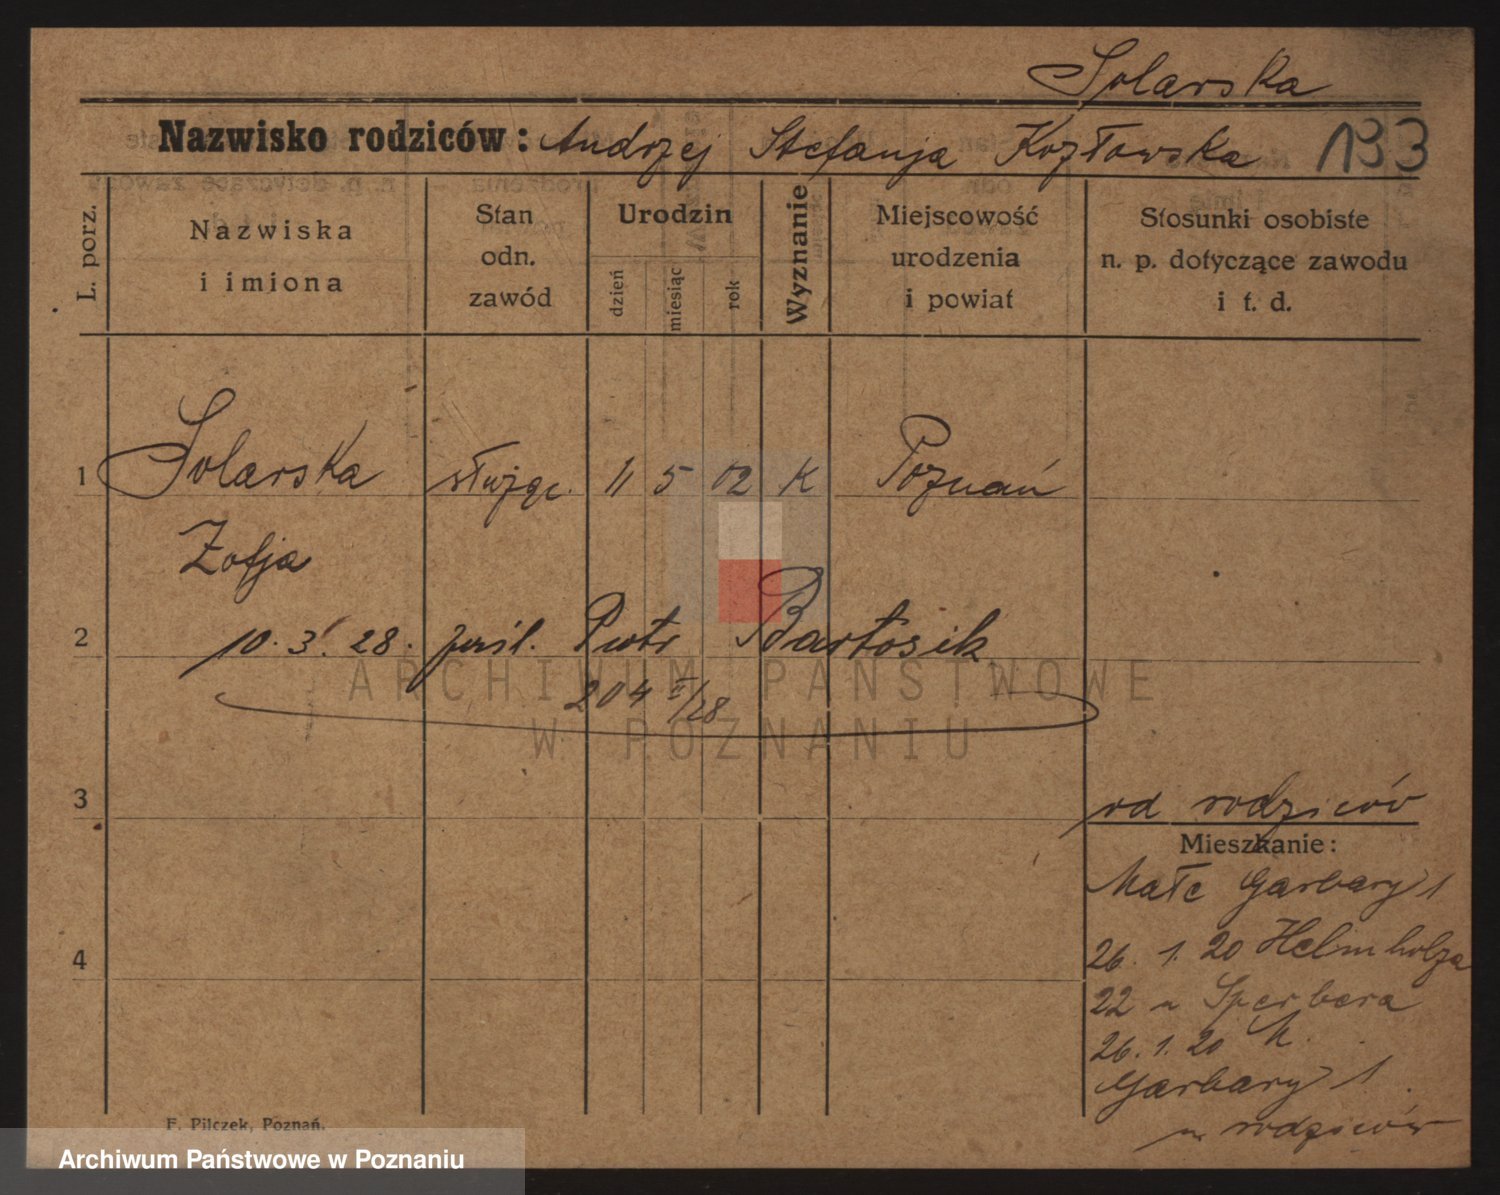 Solarska
Nazwisko rodziców: Andrzej Stefanja Kozłowska 133
L. porz.
Nazwiska
i imiona
Stan
odn.
zawód
Urodzin
dzień
miesiąc
rok
Wyznanie
Miejscowość
urodzenia
i powiat
Stosunki osobiste
n. p. dotyczące zawodu
i t. d.
1 Solarska służąc. 11 5 02 K Poznań
Zofja
2 10. 3. 28. Piotr Bartosik
204 II/28
ARCHIWUM PAŃSTWOWE
W POZNANIU
3
od rodziców
Mieszkanie:
Małe Garbary 1
4 26. 1. 20 Helmholza
22 u Sperbera
26. 1. 20 M.
Garbary 1
u rodziców
F. Pilczek, Poznań.
Archiwum Państwowe w Poznaniu